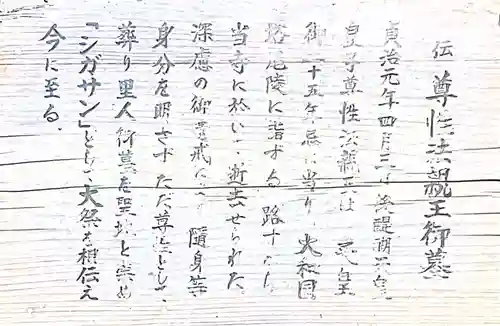 伝 尊性法親王御墓
貞治元年四月三日後醍醐天皇
皇子尊性法親王は 天皇
御二十五年忌に当り 大和国
塔尾陵に詣する路すがら
当寺に於いて逝去せられた
深慮の御遺戒により 随身等
身分を明さずただ尊法として
葬り里人御墓を聖地と崇め
「シガサン」ととなえ大祭を相伝え
今に至る。